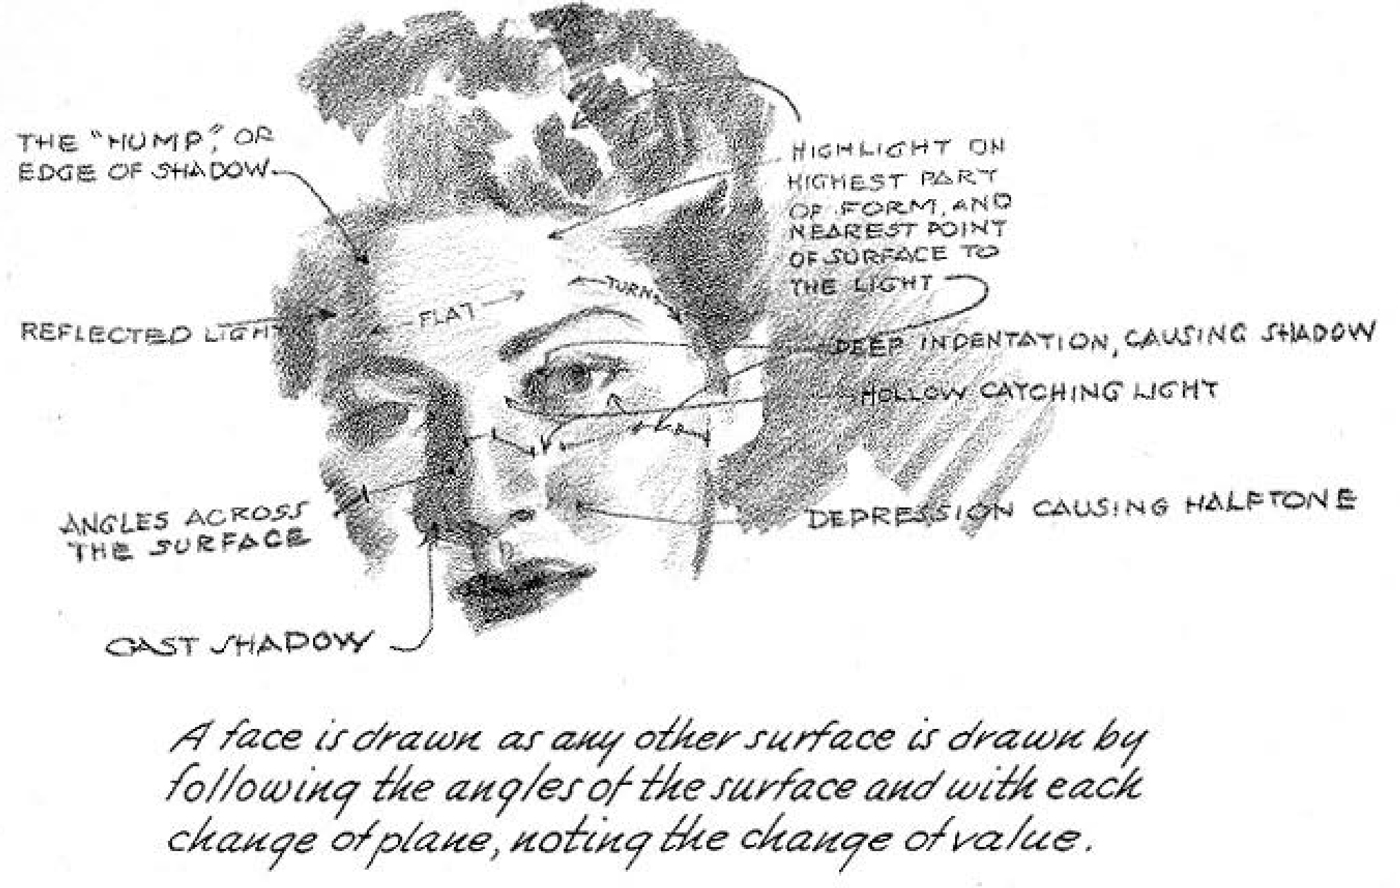 THE "HUMP", OR
EDGE OF SHADOW
HIGHLIGHT ON
HIGHEST PART
OF FORM, AND
NEAREST POINT
OF SURFACE TO
THE LIGHT
FLAT
TURN
REFLECTED LIGHT
DEEP INDENTATION, CAUSING SHADOW
HOLLOW CATCHING LIGHT
ANGLES ACROSS
THE SURFACE
DEPRESSION CAUSING HALFTONE
CAST SHADOW
A face is drawn as any other surface is drawn by
following the angles of the surface and with each
change of plane, noting the change of value.